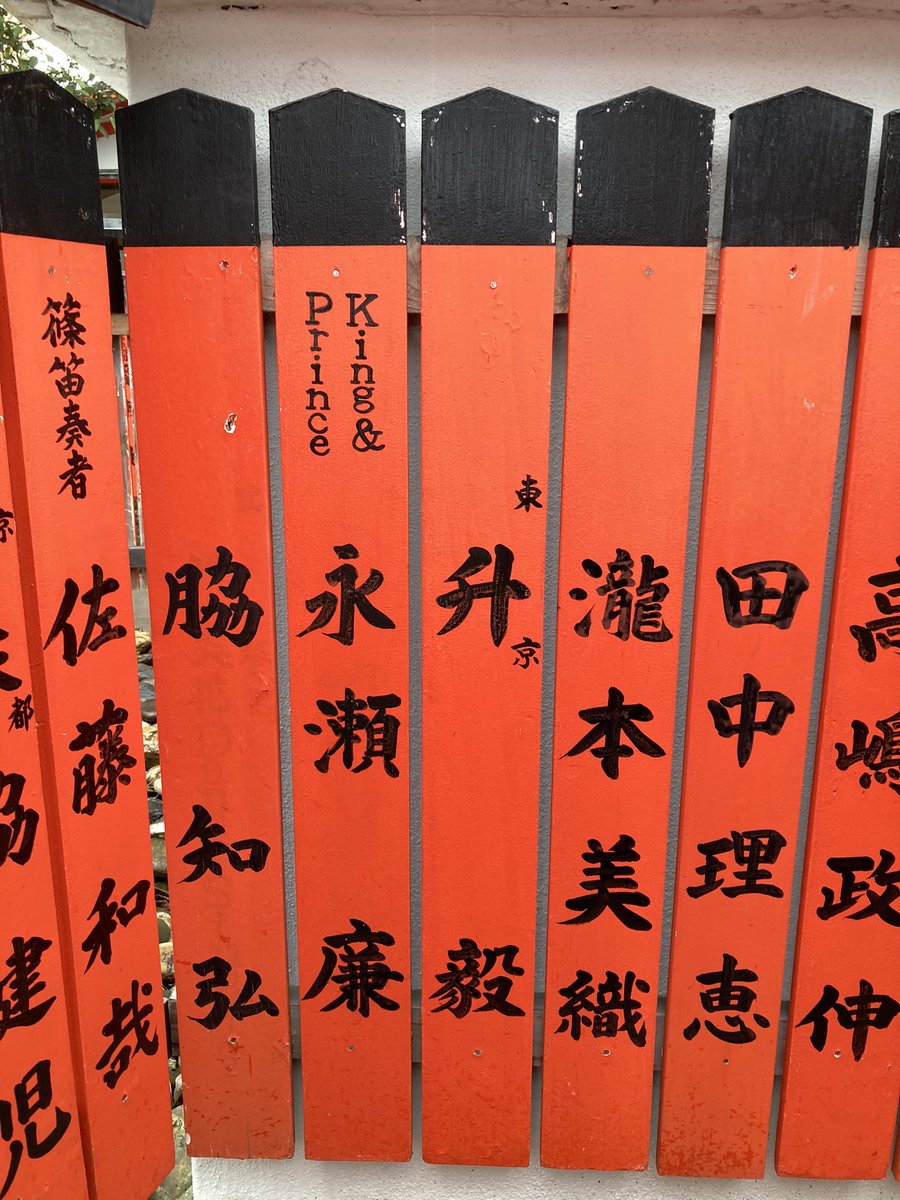 高嶋政伸
田中理恵
瀧本美織
東京
升毅
King&
Prince
永瀬廉
脇知弘
篠笛奏者
佐藤和哉
京都
脇健児